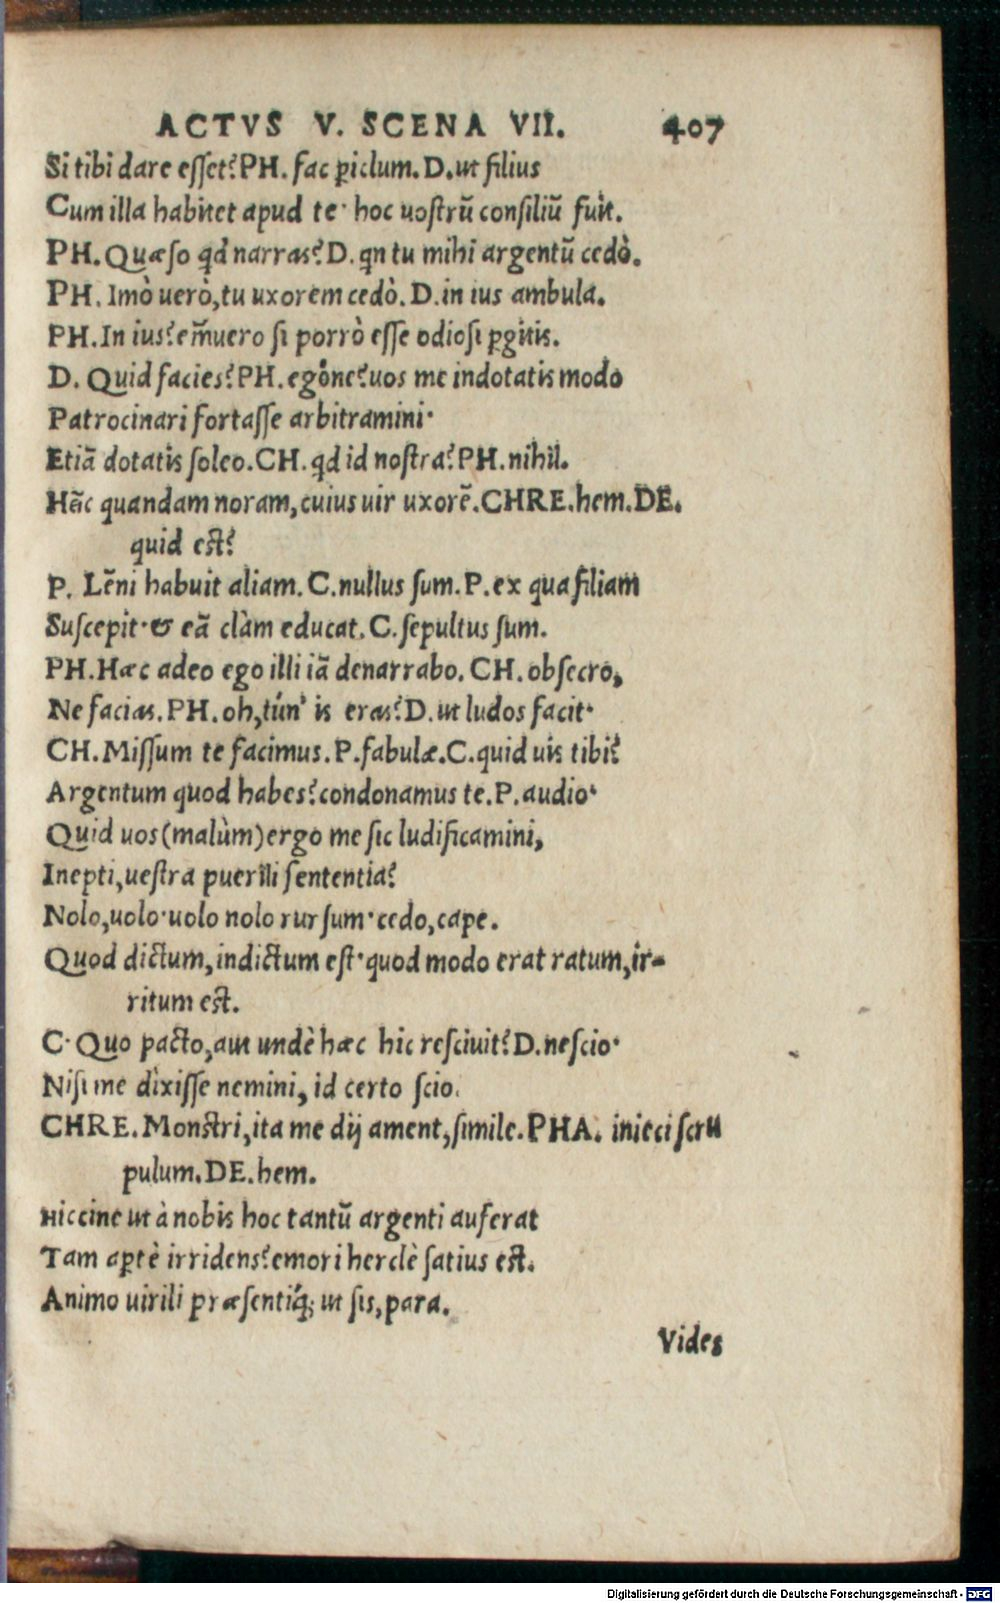 ACTVS V. SCENA VII. 407
Si tibi dare eſſet? PH. fac ꝑiclum. D. ut filius
Cum illa habitet apud te· hoc uoſtrũ conſiliũ fuit.
PH. Quæſo qd narras? D. qn tu mihi argentũ cedò.
PH. Imò uerò, tu uxorem cedò. D. in ius ambula.
PH. In ius? em̃uero ſi porrò eſſe odioſi ꝑgitis.
D. Quid facies? PH. egóne? uos me indotatis modo
Patrocinari fortaſſe arbitramini·
Etiã dotatis ſoleo. CH. qd id noſtra? PH. nihil.
Hãc quandam noram, cuius uir uxorẽ. CHRE. hem. DE.
quid eſt?
P. Lẽni habuit aliam. C. nullus ſum. P. ex qua filiam
Suſcepit· & eã clàm educat. C. ſepultus ſum.
PH. Hæc adeo ego illi iã denarrabo. CH. obſecro,
Ne facias. PH. oh, tún' is eras? D. ut ludos facit·
CH. Miſſum te facimus. P. fabulæ. C. quid uis tibi?
Argentum quod habes? condonamus te. P. audio·
Quid uos (malùm) ergo me ſic ludificamini,
Inepti, ueſtra puerili ſententia?
Nolo, uolo· uolo nolo rurſum· cedo, cape.
Quod dictum, indictum eſt· quod modo erat ratum, ir-
ritum eſt.
C· Quo pacto, aut undè hæc hic reſciuit? D. neſcio·
Niſi me dixiſſe nemini, id certo ſcio.
CHRE. Monſtri, ita me dij ament, ſimile. PHA. inieci ſcru
pulum. DE. hem.
Hiccine ut à nobis hoc tantũ argenti auferat
Tam aꝑtè irridens? emori herclè ſatius eſt.
Animo uirili præſentiq́; ut ſis, para.
Vides
Digitalisierung gefördert durch die Deutsche Forschungsgemeinschaft - DFG